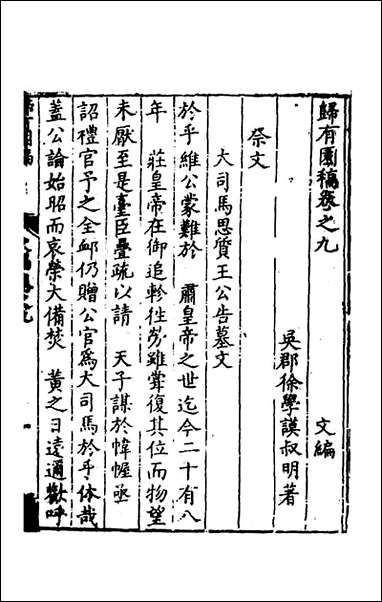 歸有園稿卷之九　文編
吳郡徐學謨叔明著
祭文
大司馬思質王公告墓文
於乎維公蒙難於　肅皇帝之世迄今二十有八
年　莊皇帝在御追軫徃勞雖甞復其位而物望
未厭至是臺臣疊疏以請　天子謀於幃幄亟
詔禮官予之全卹仍贈公官爲大司馬於乎休哉
蓋公論始昭而哀榮大備焚　黃之日遠邇歡呼